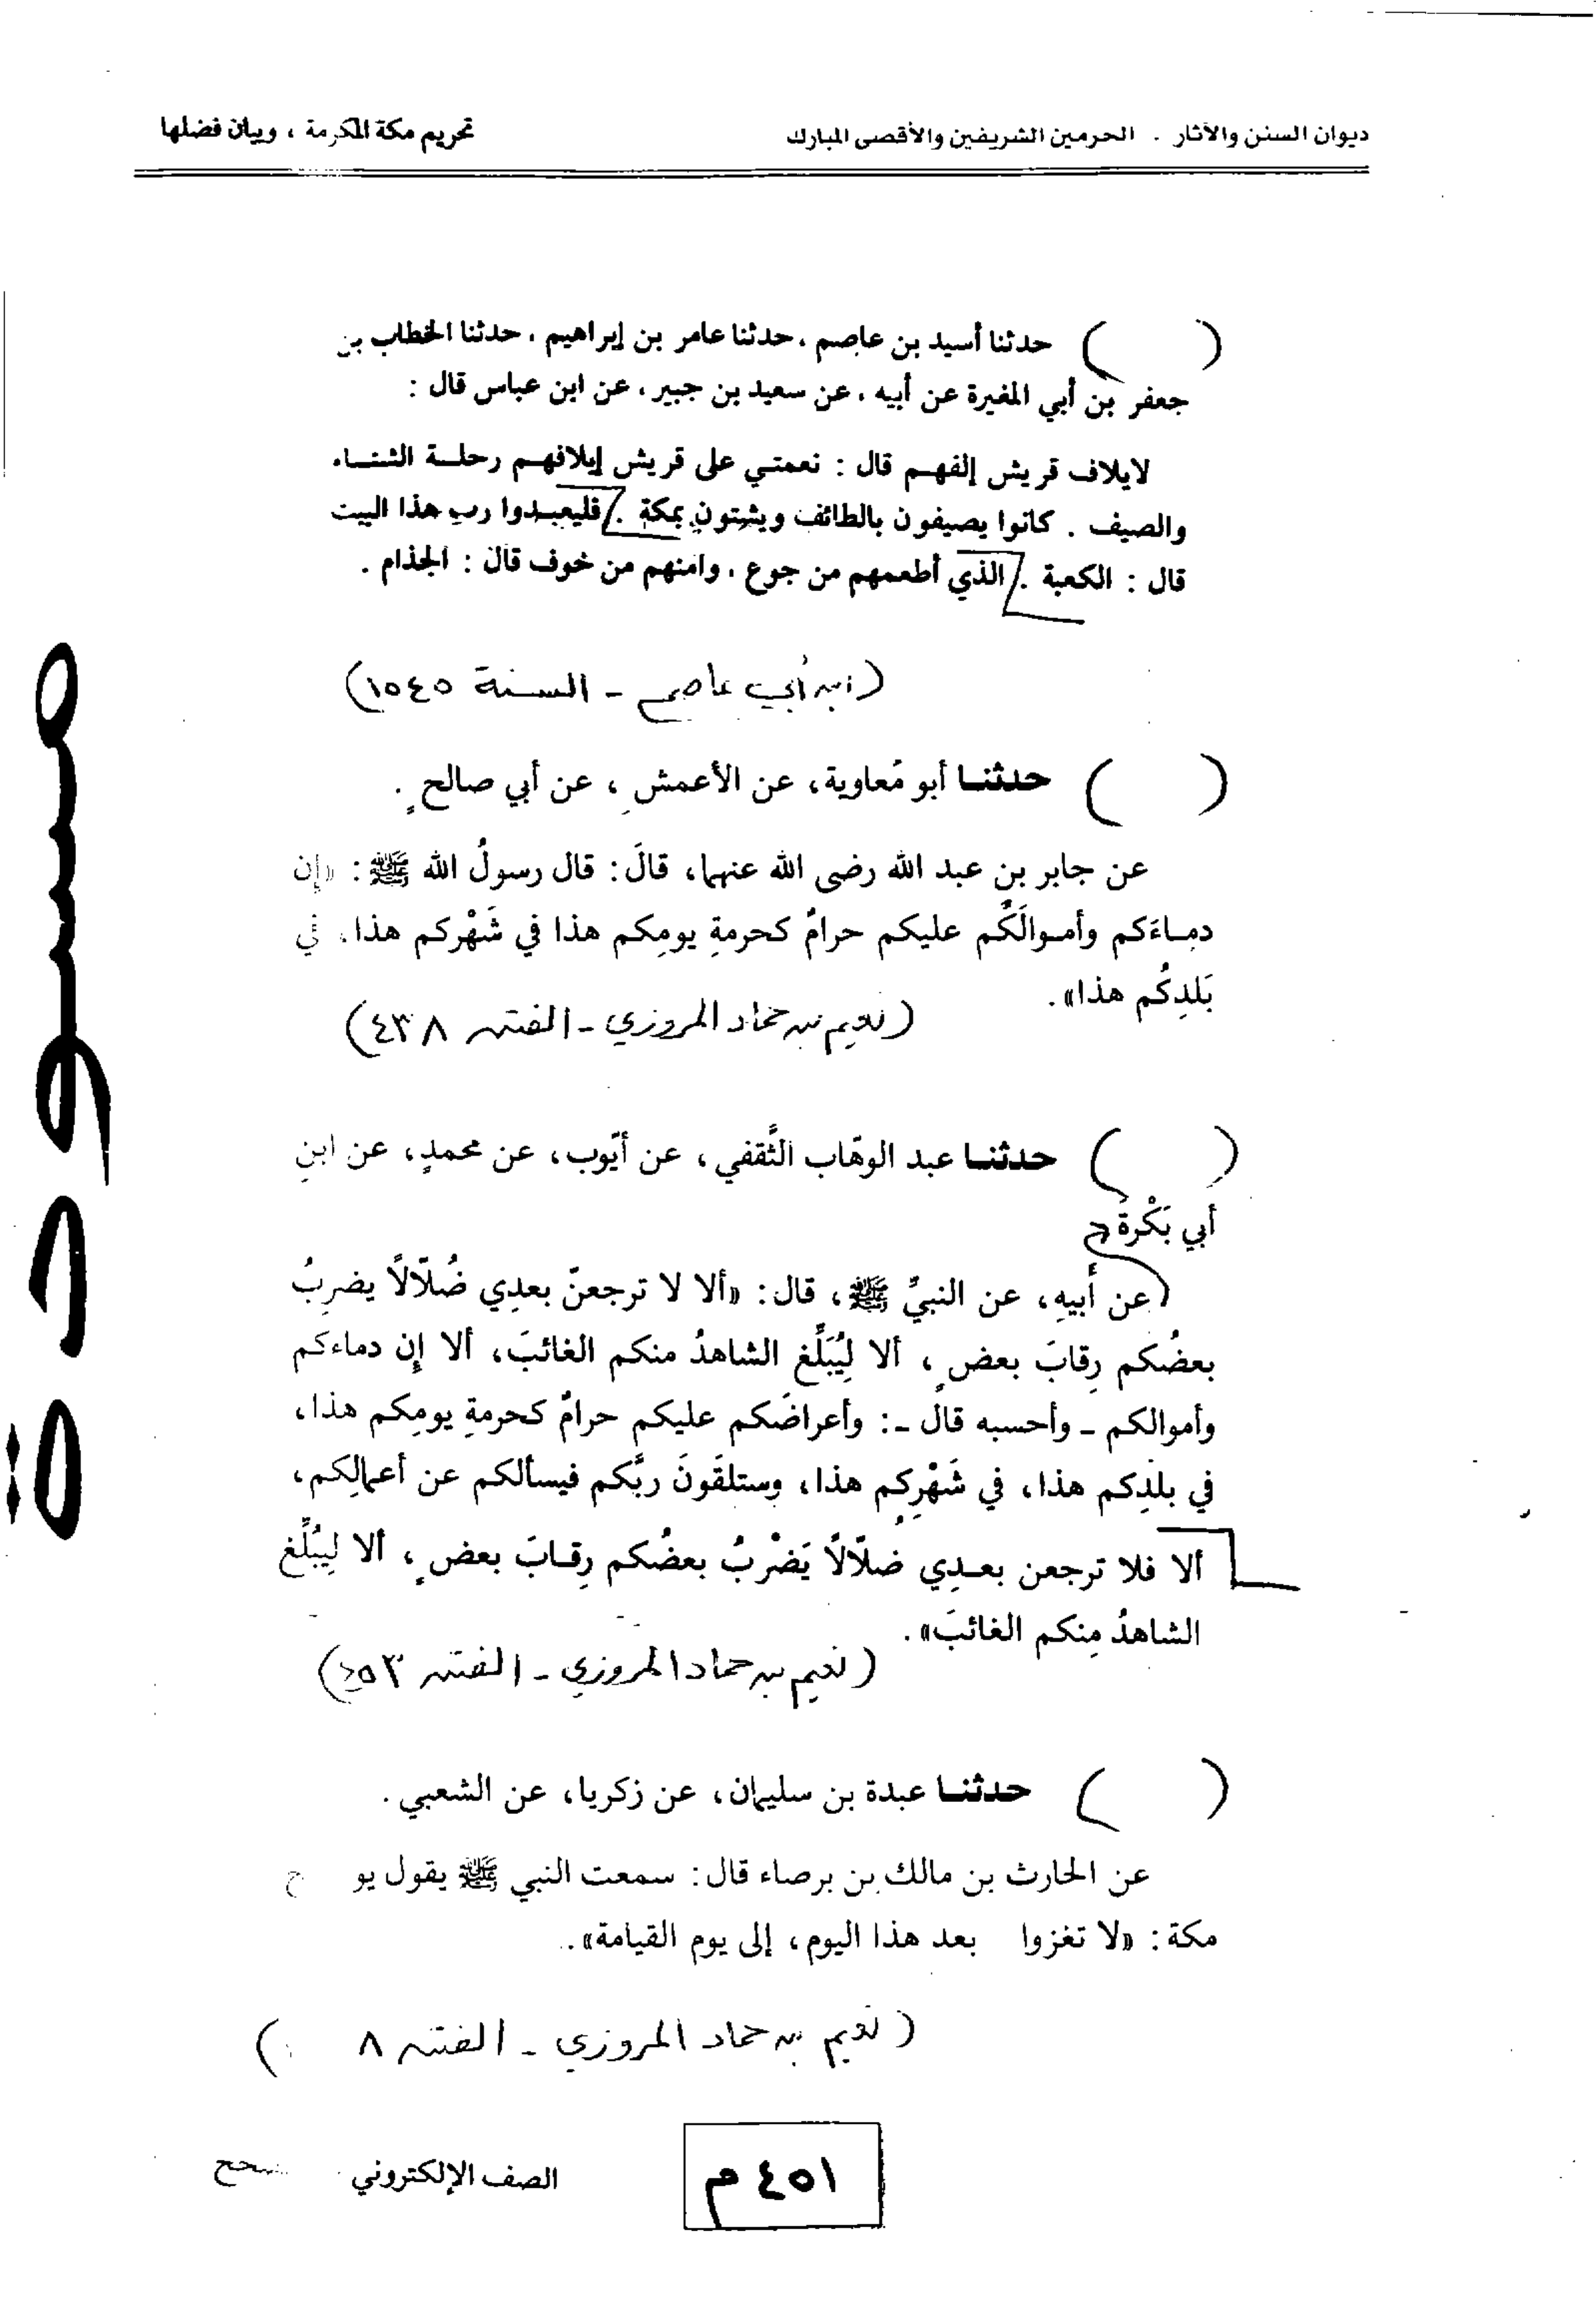 ديوان السنن والآثار . الحرمين الشريفين والأقصى المبارك
تحريم مكة المكرمة ، وبيان فضلها
( ) حدثنا أسيد بن عاصم ، حدثنا عامر بن إبراهيم ، حدثنا الخطاب بن
جعفر بن أبي المغيرة عن أبيه ، عن سعيد بن جبير ، عن ابن عباس قال :
لايلاف قريش إلفهم قال : نعمتي على قريش إيلافهم رحلة الشتاء
والصيف . كانوا يصيفون بالطائف ويشتون بمكة . فليعبدوا رب هذا البيت
قال : الكعبة . الذي أطعمهم من جوع ، وآمنهم من خوف قال : الجذام .
(ابن أبي عاصم - السنة ١٥٤٥)
( ) حدثنا أبو مُعاوية، عن الأعمشِ ، عن أبي صالحٍ .
عن جابر بنِ عبد الله رضى الله عنهما، قالَ: قال رسولُ الله ﷺ: «إن
دماءَكم وأموالَكُم عليكم حرامٌ كحرمةِ يومِكم هذا في شَهْركم هذا، في
بَلدِكُم هذا».
(نعيم بن حماد المروزي - الفتن ٤٣٨)
( ) حدثنا عبد الوهّاب الثَّقفي، عن أيّوب، عن محمدٍ، عن ابنِ
أبي بَكْرةَ
عن أبيهِ، عن النبيِّ ﷺ، قال: «ألا لا ترجعنّ بعدِي ضُلّالًا يضرِبُ
بعضُكم رِقابَ بعضٍ ، ألا لِيُبَلِّغ الشاهدُ منكم الغائبَ، ألا إن دماءكم
وأموالكم - وأحسبه قال -: وأعراضَكم عليكم حرامٌ كحرمةِ يومِكم هذا،
في بلدِكم هذا، في شَهْرِكم هذا، وستلقَونَ ربَّكم فيسألكم عن أعمالِكم،
ألا فلا ترجعن بعدِي ضلّالًا يَضْرِبُ بعضُكم رِقابَ بعضٍ ، ألا لِيُبَلِّغ
الشاهدُ مِنكم الغائبَ».
(نعيم بن حماد المروزي - الفتن ٤٥٣)
( ) حدثنا عبدة بن سليمان، عن زكريا، عن الشعبي .
عن الحارث بن مالك بن برصاء قال: سمعت النبي ﷺ يقول يو ح
مكة: «لا تغزوا بعد هذا اليوم، إلى يوم القيامة».
(نعيم بن حماد المروزي - الفتن ٨ )
٤٥١ م
الصف الإلكتروني
مسودة